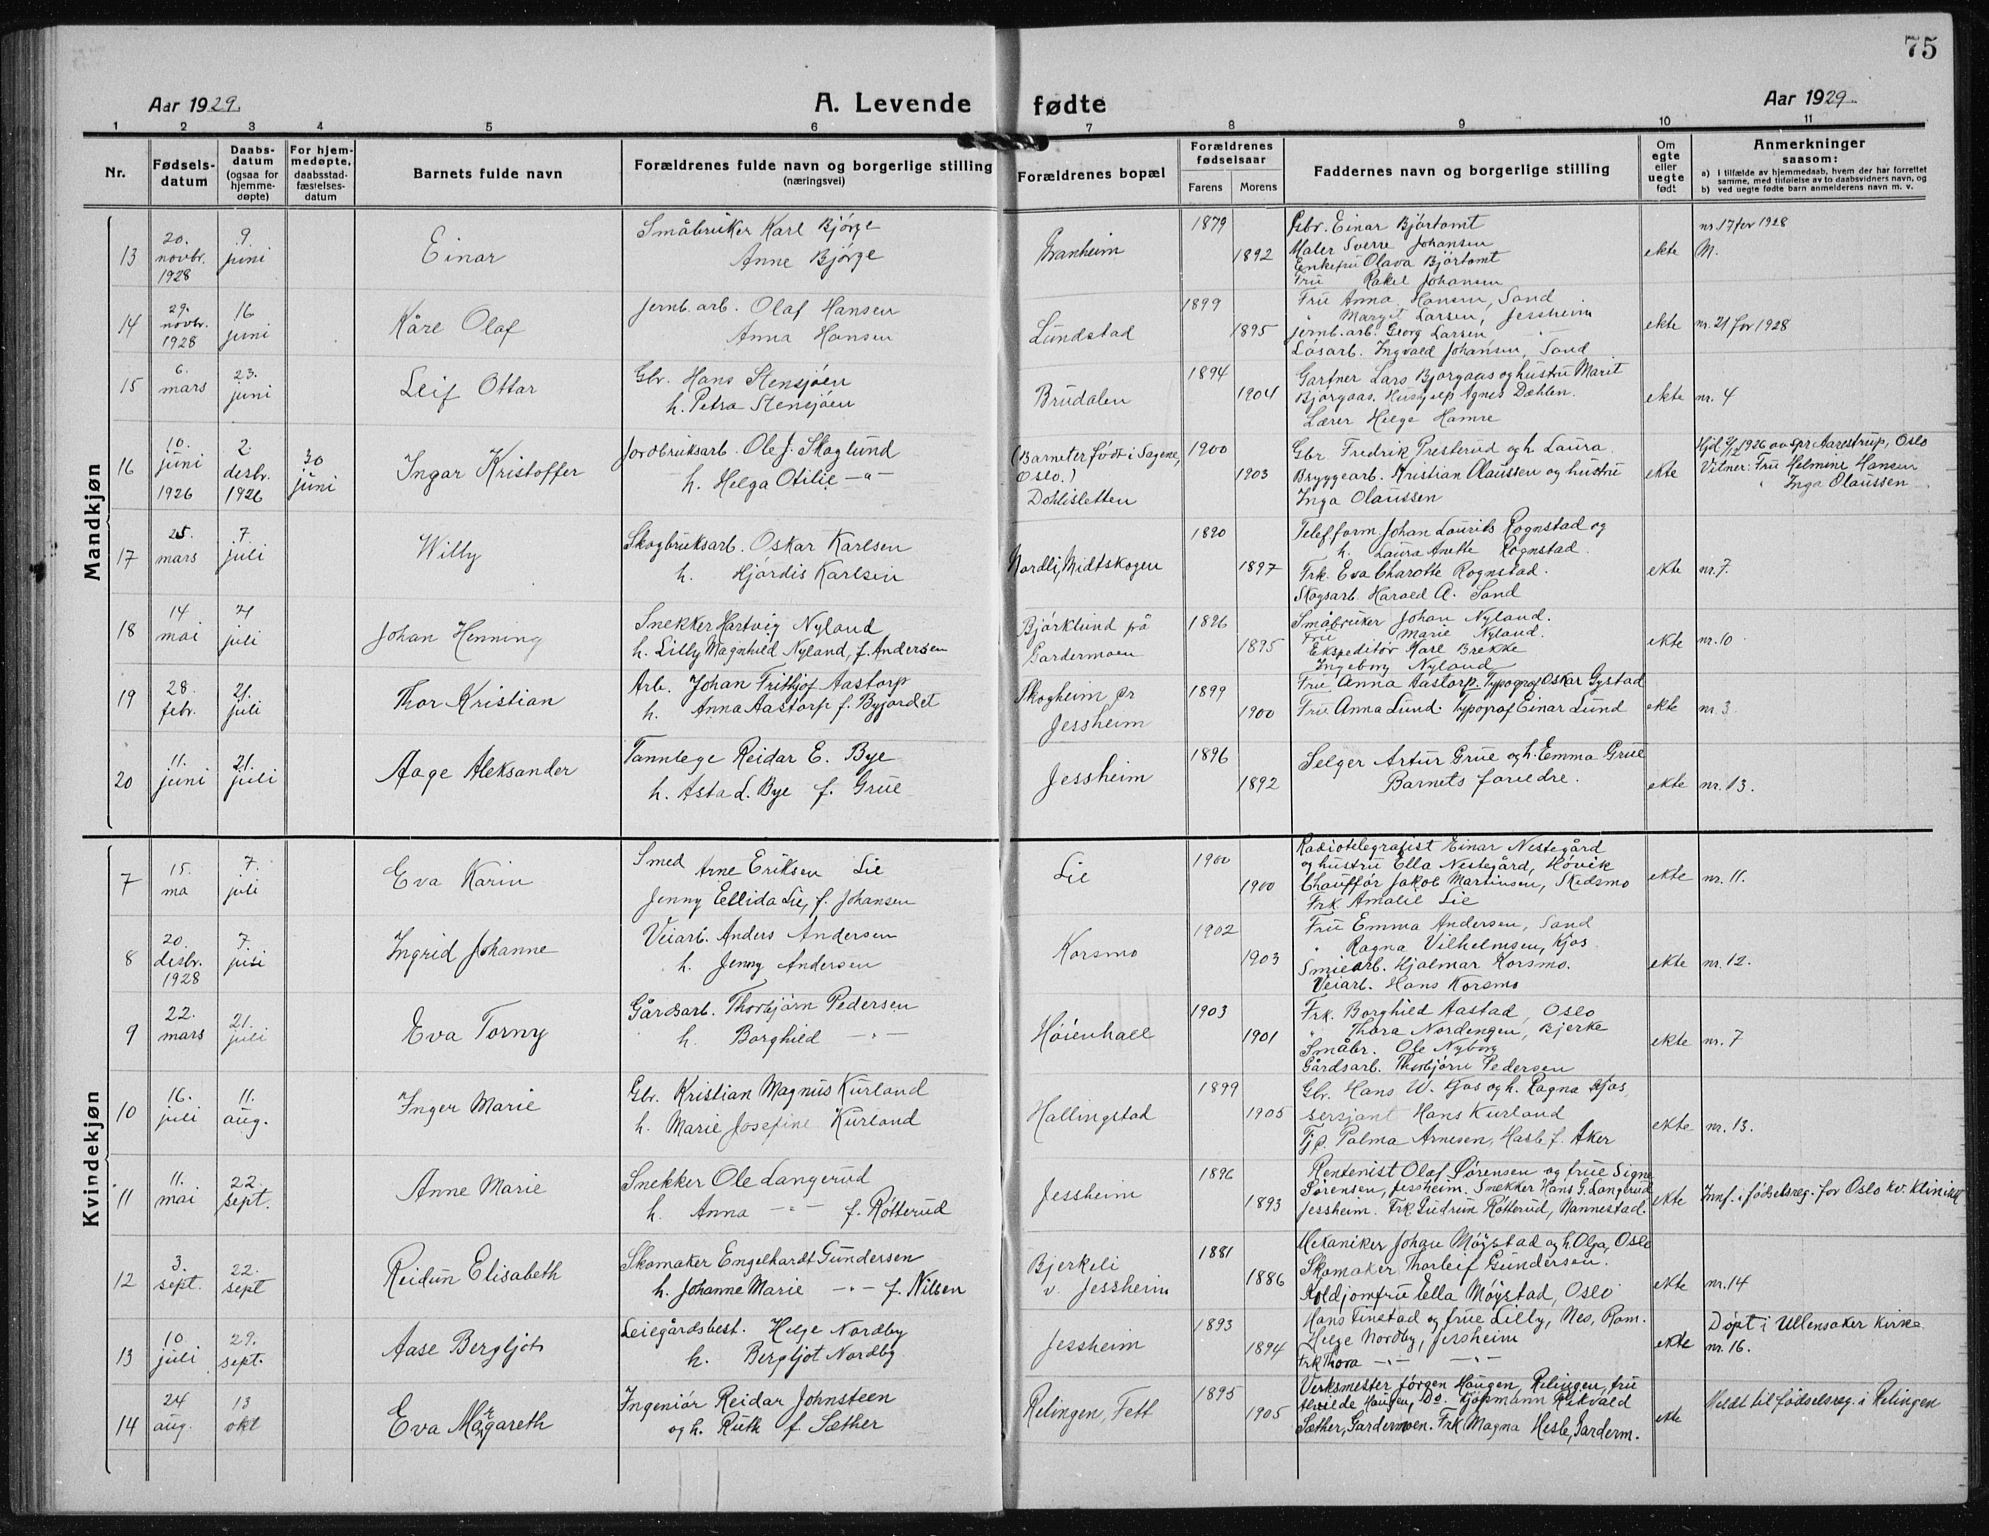 75
Aar 1929.
A. Levende fødte
Aar 1929.
1 2 3 4 5 6 7 8 9 10 11
Nr.
Fødsels-
datum
Daabs-
datum
(ogsaa for
hjemme-
døpte)
For hjem-
medøpte,
daabsstad-
fæstelses-
datum
Barnets fulde navn
Forældrenes fulde navn og borgerlige stilling
(næringsvei)
Forældrenes bopæl
Forældrenes
fødselsaar
Farens Morens
Faddernes navn og borgerlige stilling
Om
egte
eller
uegte
født
Anmerkninger
saasom:
a) I tilfælde av hjemmedaab, hvem der har forrettet
samme, med tilføielse av to daabsvidners navn, og
b) ved uegte fødte barn anmelderens navn m. v.
Mandkjøn
13
20.
novbr.
1928
9.
juni
Einar
Småbruker Karl Bjørge
Anne Bjørge
Granheim
1879
1892
Gbr. Einar Bjørtomt
Maler Sverre Johansen
Enkefru Olava Bjørtomt
Fru Rakel Johansen
ekte
nr. 17 for 1928
M.
14
29.
novbr.
1928
16
juni
Kåre Olaf
Jernb. arb. Olaf Hansen
Anna Hansen
Lundstad
1899
1895
Fru Anna Hansen, Sand
" Margit Larsen, Jessheim
jernb. arb. Georg Larsen -"-
Løsarb. Ingvald Johansen, Sand
ekte
nr. 21 for 1928
15
6.
mars
23.
juni
Leif Ottar
Gbr. Hans Stensjøen
h. Petra Stensjøen
Brudalen
1894
1904
Gartner Lars Bjørgaas og hustru Marit
Bjørgaas. Hushjelp Agnes Dæhlen.
Lærer Helge Hamre
ekte
nr. 4
16
10.
juni
1926
2.
desbr.
1926
30
juni
Ingar Kristoffer
Jordbruksarb. Ole J. Skoglund
h. Helga Otilie -"-
(Barnet er født i Sagene,
Oslo.)
Dohlisletten
1900
1903
Gbr. Fredrik Presterud og h. Laura.
Bryggearb. Kristian Olaussen og hustru
Inga Olaussen
ekte
1926 av spr. Aarestrup, Oslo
Vitner: Fru Helmine Hansen
" Inga Olaussen
17
25.
mars
7.
juli
Willy
Skogbruksarb. Oskar Karlsen
h. Hjørdis Karlsen
Nordli, Midtskogen
1890
1897
Telefform. Johan Laurits Rognstad og
h. Laura Anette Rognstad.
Frk. Eva Charotte Rognstad.
Skogsarb. Harald A. Sand
ekte
nr. 7.
18
14
mai
21
juli
Johan Henning
Snekker Hartvig Nyland
h. Lilly Magnhild Nyland, f. Andersen
Bjørklund på
Gardermoen
1896
1895
Småbruker Johan Nyland.
Fru Marie Nyland.
Ekspeditør Karl Brekke
Ingeborg Nyland
ekte
nr. 10
19
28.
febr.
21.
juli
Thor Kristian
Arb. Johan Frithjof Aastorp
h. Anna Aastorp f. Byjordet
Skogheim pr
Jessheim
1899
1900
Fru Anna Aastorp. Typograf Oskar Gystad
Fru Anna Lund. Typograf Einar Lund
ekte
nr. 3
20
11.
juni
21.
juli
Aage Aleksander
Tannlege Reidar E. Bye
h. Asta d. Bye f. Grue
Jessheim
1896
1892
Selger Artur Grue og h. Emma Grue
Barnets foreldre.
ekte
nr. 13.
Kvindekjøn
7
15.
ma
7.
juli
Eva Karin
Smed Arne Eriksen Lie
Jenny Ellida Lie, f. Johansen
Lie
1900
1900
Radiotelegrafist Einar Nestegård
og hustru Ella Nestegård, Høvik
Chauffør Jakob Martinsen, Skedsmo
Frk. Amalie Lie
ekte
nr. 11.
8
20.
desbr.
1928
7.
juli
Ingrid Johanne
Veiarb. Anders Andersen
h. Jenny Andersen
Korsmo
1902
1903
Fru Emma Andersen, Sand
" Ragna Vilhelmsen, Kjos
Smiearb. Hjalmar Korsmo.
Veiarb. Hans Korsmo
ekte
nr. 12.
9
22.
mars
21.
juli
Eva Torny
Gårdsarb. Thorbjørn Pedersen
h. Borghild -"-
Høienhall
1903
1901
Frk. Borghild Aastad, Oslo
" Thora Nordengen, Bjerke
Småbr. Ole Nyborg
Gårdsarb. Thorbjørn Pedersen
ekte
nr. 7
10
16.
juli
11.
aug.
Inger Marie
Gbr. Kristian Magnus Kurland
h. Marie Josefine Kurland
Hallingstad
1899
1905
Gbr. Hans W. Kjos og h. Ragna Kjos,
sersjant Hans Kurland
Tjp. Palma Arnesen, Hasle f. Aker
ekte
nr. 13.
11
11.
mai
22.
sept.
Anne Marie
Snekker Ole Langerud
h. Anna -"- f. Røtterud
Jessheim
1896
1893
Rentenist Olaf Sørensen og frue Signe
Sørensen, Jessheim. Snekker Hans G. Langerud
Jessheim. Frk. Gudrun Røtterud, Nannestad.
ekte
Innf. i fødselsreg. for Oslo kv. klinikk
12
3.
sept.
22.
sept
Reidun Elisabeth
Skomaker Engelhardt Gundersen
h. Johanne Marie -"- f. Nilsen
Bjerkeli
v. Jessheim
1881
1886
Mekaniker Johan Møystad og h. Olga, Oslo
Skomaker Thorleif Gundersen.
Koldjomfru Ella Møystad, Oslo
ekte
nr. 14
13
10.
juli
29.
sept.
Aase Bergljot
Leiegårdsbest. Helge Nordby
h. Bergljot Nordby
Jessheim
1893
1894
Hans Finstad og frue Lilly, Nes, Rom.
Helge Nordby, Jessheim
Frk Thora -"- -"-
ekte
Døpt i Ullensaker kirke
nr. 16.
14
24
aug.
13
okt
Eva Margareth
Ingeniør Reidar Johnsteen
og h. Ruth f. Sæther
Relingen, Fett
1895
1905
Verksmester Jørgen Haugen, Relinggen, fru
Alvilde Haugen, Do. Kjøpmann Ketvald
Sæther, Gardermoen. Frk. Magna Hesle, Garderm.
ekte
Meldt til fødselsreg. i Relingen